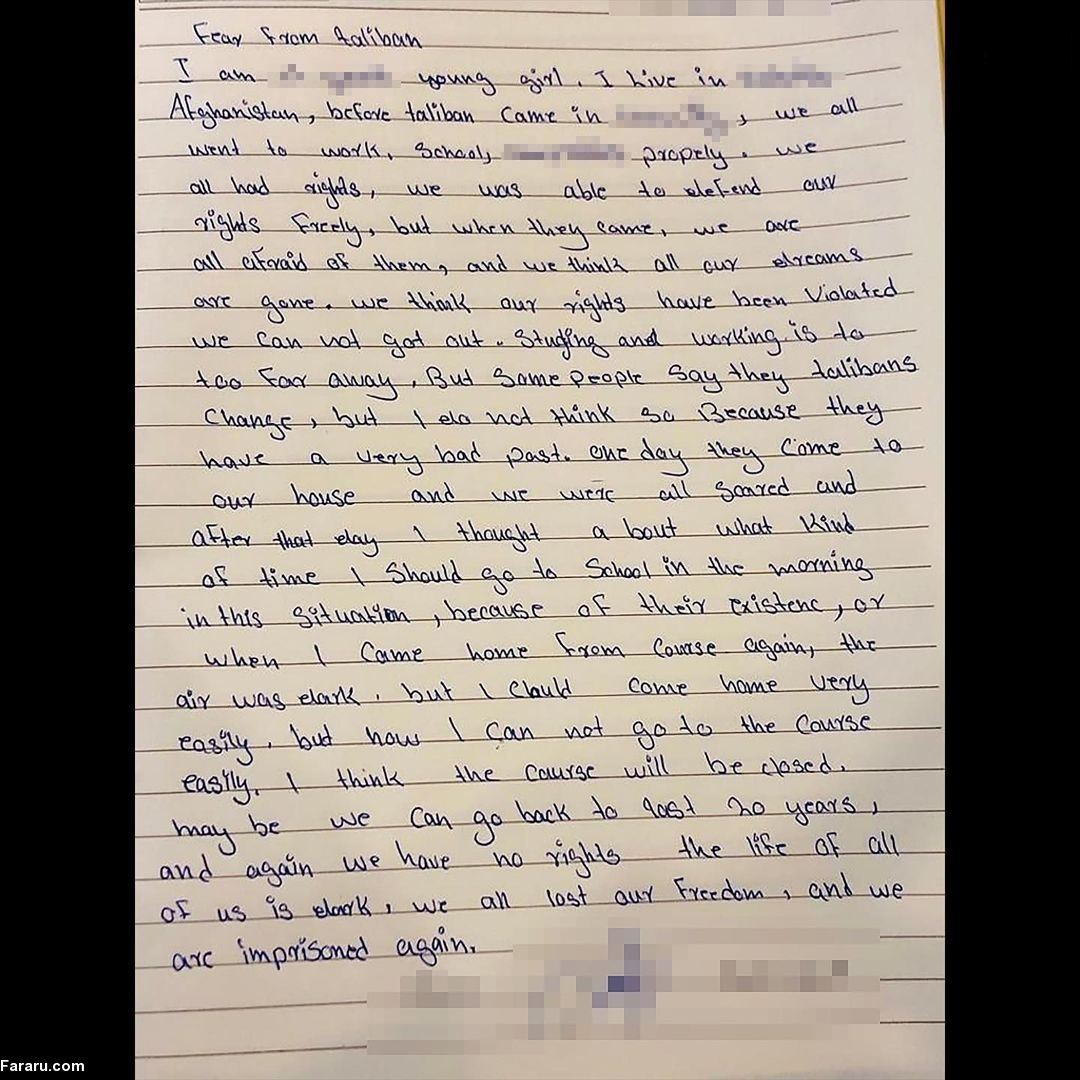 Fear from taliban
I am young girl. I live in
Afghanistan, before taliban came in , we all
went to work, School, propely. we
all had rights, we was able to defend our
rights freely, but when they came, we are
all afraid of them, and we think all our dreams
are gone. we think our rights have been Violated
we can not got out. Studing and working is to
too far away. But Some people Say they talibans
Change, but I do not think so Because they
have a very bad past. one day they come to
our house and we were all Scared and
after that day I thought a bout what kind
of time I Should go to School in the morning
in this Situation, because of their existenc, or
when I came home from Course again, the
air was dark. but I Could come home very
easily. but now I can not go to the course
easily. I think the course will be closed.
may be we can go back to last 20 years,
and again we have no rights the life of all
of us is dark, we all lost our freedom, and we
are imprisoned again.
Fararu.com